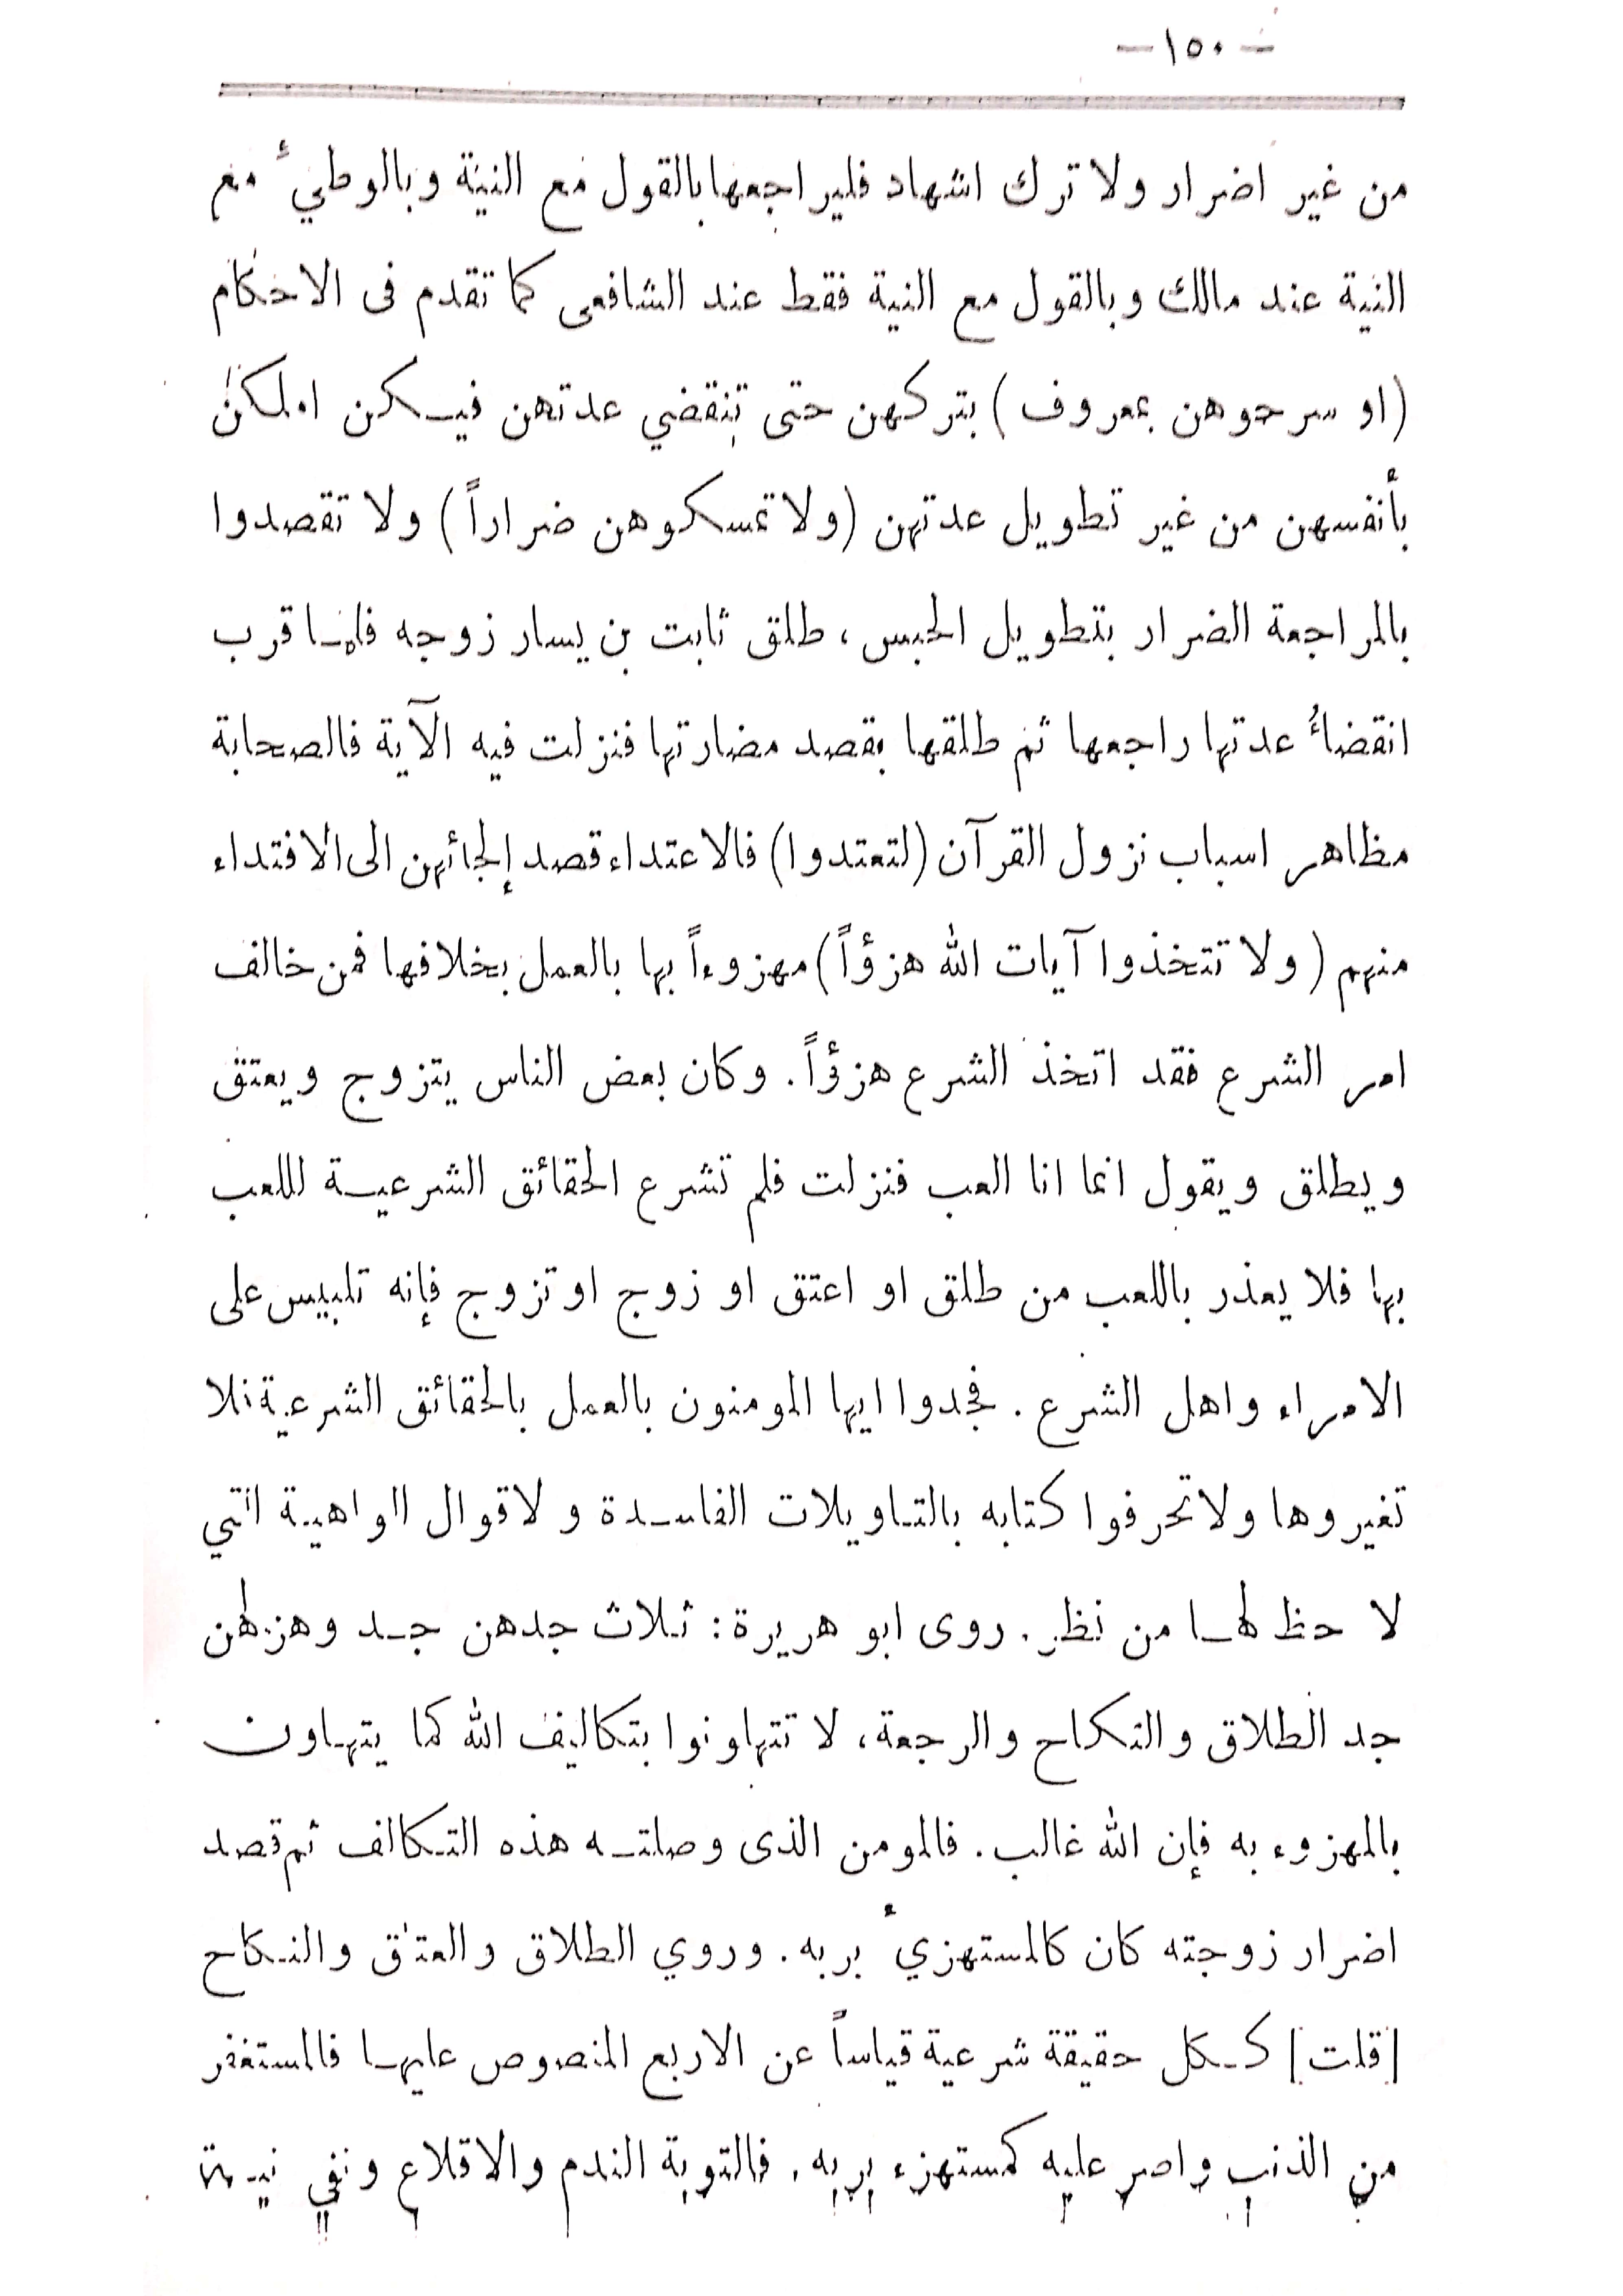 – ١٥٠ –
من غير اضرار ولا ترك اشهاد فليراجعها بالقول مع النية وبالوطيء مع
النية عند مالك وبالقول مع النية فقط عند الشافعى كما تقدم فى الاحكام
(او سرحوهن بمعروف) بتركهن حتى تنقضي عدتهن فيكن املكن
بأنفسهن من غير تطويل عدتهن (ولا تمسكوهن ضراراً) ولا تقصدوا
بالمراجعة الضرار بتطويل الحبس، طلق ثابت بن يسار زوجه فلما قرب
انقضاء عدتها راجعها ثم طلقها بقصد مضارتها فنزلت فيه الآية فالصحابة
مظاهر اسباب نزول القرآن (لتعتدوا) فالاعتداء قصد إلجائهن الى الافتداء
منهم (ولا تتخذوا آيات الله هزؤاً) مهزوءاً بها بالعمل بخلافها فمن خالف
امر الشرع فقد اتخذ الشرع هزؤاً. وكان بعض الناس يتزوج ويعتق
ويطلق ويقول انما انا العب فنزلت فلم تشرع الحقائق الشرعية للعب
بها فلا يعذر باللعب من طلق او اعتق او زوج او تزوج فإنه تلبيس على
الامراء واهل الشرع. فجدوا ايها المومنون بالعمل بالحقائق الشرعية فلا
تغيروها ولا تحرفوا كتابه بالتاويلات الفاسدة ولاقوال الواهية التي
لا حظ لها من نظر. روى ابو هريرة: ثلاث جدهن جد وهزلهن
جد الطلاق والنكاح والرجعة، لا تتهاونوا بتكاليف الله كما يتهاون
بالمهزوء به فإن الله غالب. فالمومن الذى وصلته هذه التكالف ثم قصد
اضرار زوجته كان كالمستهزيء بربه. وروي الطلاق والعتق والنكاح
[قلت] ككل حقيقة شرعية قياساً عن الاربع المنصوص عليها فالمستغفر
من الذنب واصر عليه كمستهزء بربه. فالتوبة الندم والاقلاع ونفي نية